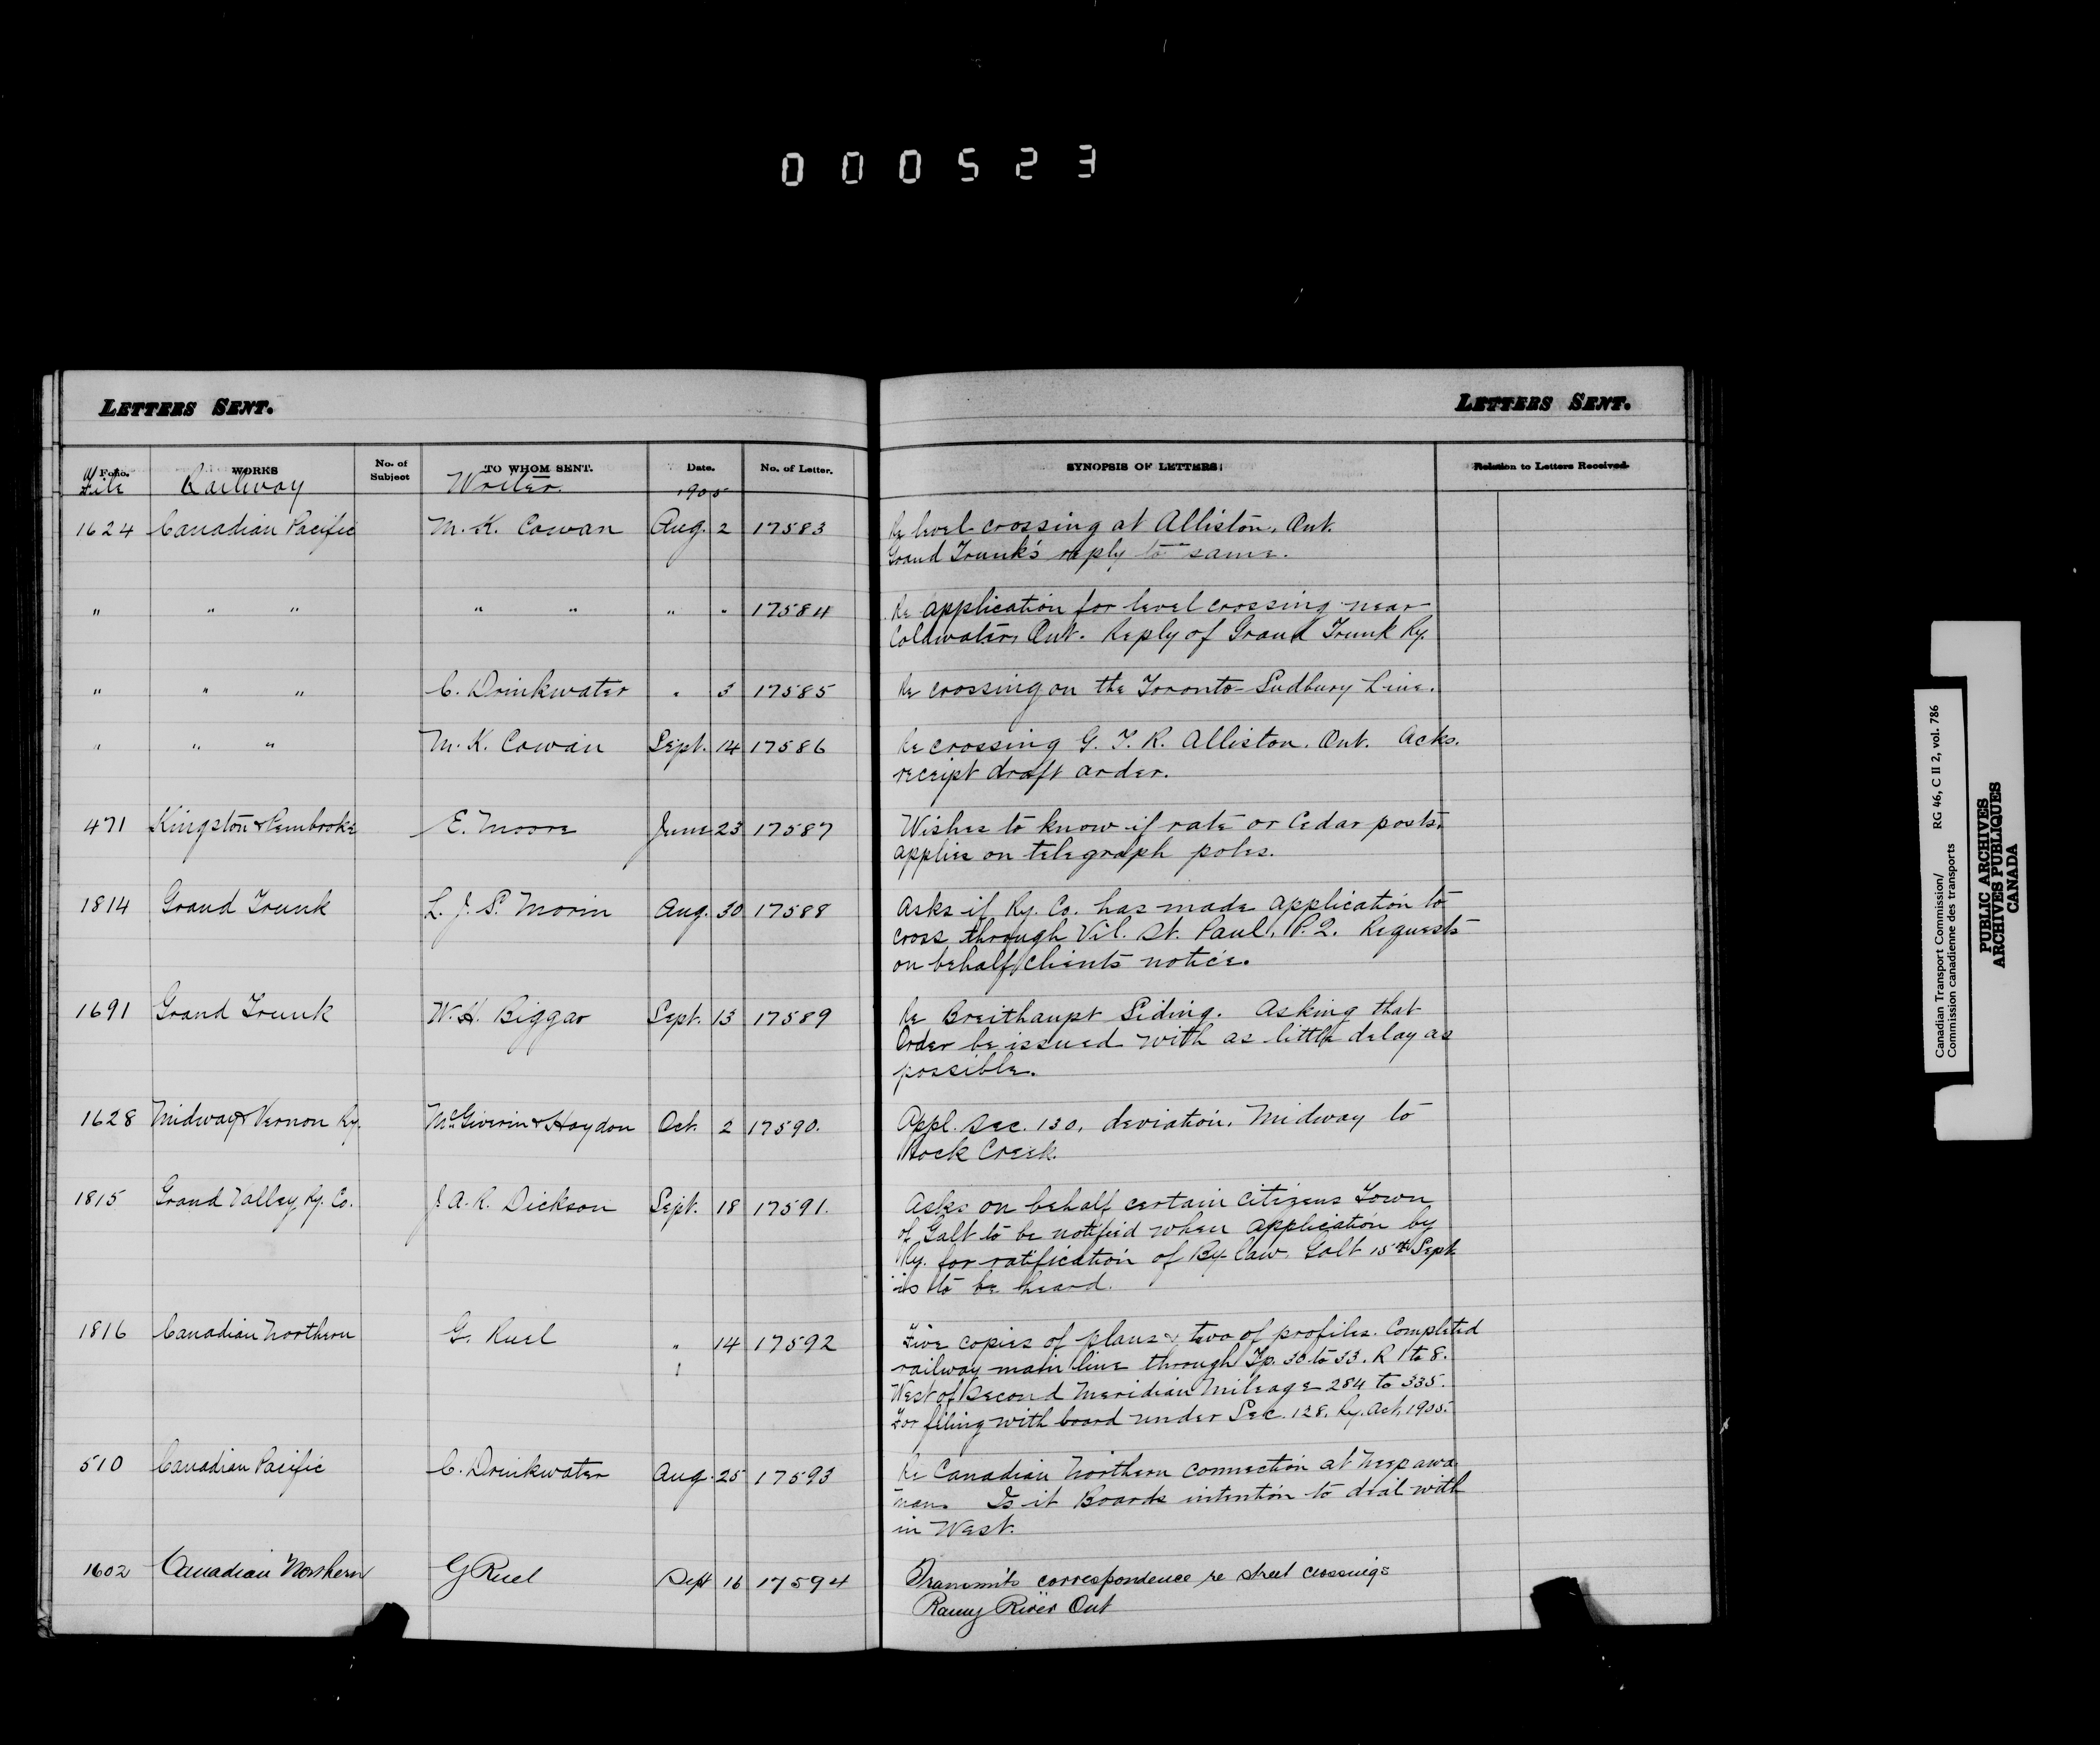 000523
LETTERS SENT.
LETTERS SENT.
Folio. WORKS No. of Subject TO WHOM SENT. Date. No. of Letter. SYNOPSIS OF LETTERS. Relation to Letters Received.
File Railway Writer 1905
1624 Canadian Pacific M. K. Cowan Aug. 2 17583 Re level crossing at Alliston, Ont.
Grand Trunk's reply to same.
" " " " " " " 17584 Re application for level crossing near
Coldwater, Ont. Reply of Grand Trunk Ry.
" " " C. Drinkwater " 3 17585 Re crossing on the Toronto-Sudbury Line.
" " " M. K. Cowan Sept. 14 17586 Re crossing G. T. R. Alliston, Ont. Acks.
receipt draft order.
471 Kingston & Pembroke E. Moore June 23 17587 Wishes to know if rate or Cedar posts,
applies on telegraph poles.
1814 Grand Trunk L. J. S. Morin Aug. 30 17588 Asks if Ry. Co. has made application to
cross through Vil. St. Paul, P.Q. Requests
on behalf clients notice.
1691 Grand Trunk W. H. Biggar Sept. 13 17589 Re Breithaupt Siding. Asking that
Order be issued with as little delay as
possible.
1628 Midway & Vernon Ry. McGiverin & Haydon Oct. 2 17590. Appl. Sec. 130, deviation, Midway to
Rock Creek.
1815 Grand Valley Ry. Co. J. A. R. Dickson Sept. 18 17591. Asks on behalf certain citizens Town
of Galt to be notified when application by
Ry. for ratification of By-law. Galt 15th Sept.
is to be heard.
1816 Canadian Northern G. Ruel " 14 17592 Five copies of plans & two of profiles. Completed
railway main line through Tp. 30 to 33. R 1 to 8.
West of Second Meridian Mileage 284 to 335.
For filing with board under Sec. 128, Ry. Act, 1903.
510 Canadian Pacific C. Drinkwater Aug. 25 17593 Re Canadian Northern connection at Neepawa
Man. Is it Boards intention to deal with
in West.
1602 Canadian Northern G Ruel Sept 16 17594 Transmits correspondence re street crossings
Rainy River Ont
Canadian Transport Commission/ RG 46, C II 2, vol. 786
Commission canadienne des transports
PUBLIC ARCHIVES
ARCHIVES PUBLIQUES
CANADA